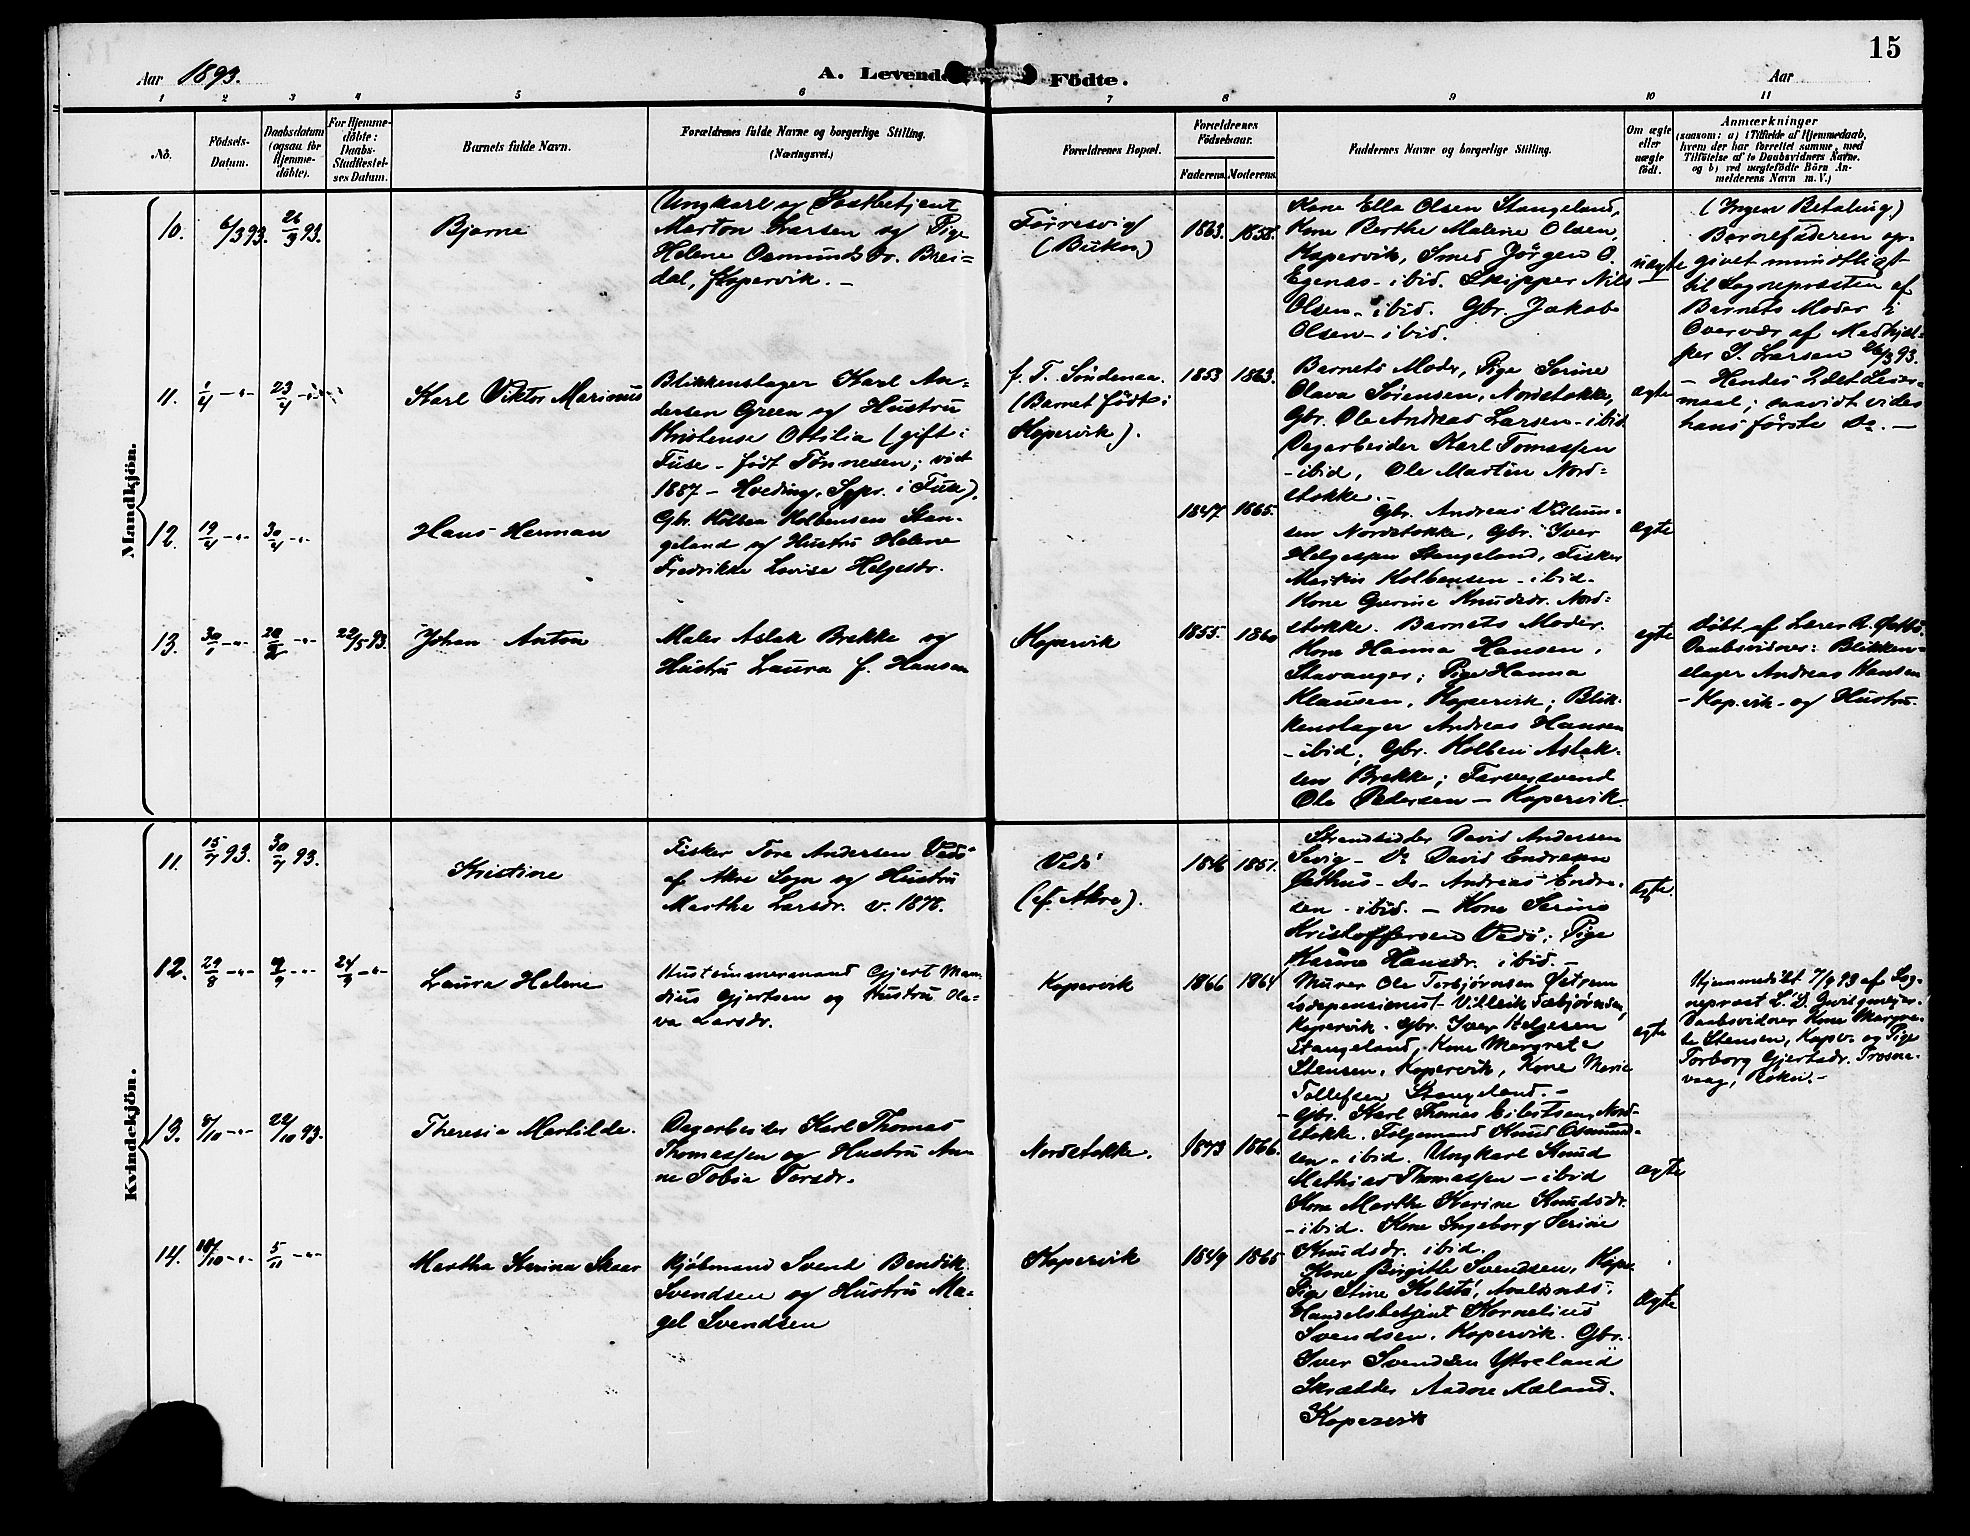 15
Aar 1893.
A. Levende Födte.
Aar
1 2 3 4 5 6 7 8 9 10 11
No.
Födsels-
Datum.
Daabsdatum
(ogsaa for
Hjemme-
döbte).
For Hjemme-
döbte:
Daabs-
Stadfæstel-
ses Datum.
Barnets fulde Navn.
Forældrenes fulde Navne og borgerlige Stilling.
(Næringsvei.)
Forældrenes Bopæl.
Forældrenes
Födselsaar.
Faderens. Moderens.
Faddernes Navne og borgerlige Stilling.
Om ægte
eller
uægte
födt.
Anmærkninger
(saasom: a) i Tilfælde af Hjemmedaab,
hvem der har forrettet samme, med
Tilföielse af to Daabsvidners Navne.
og b) ved uægtefödte Börn An-
melderens Navn m. V.)
Mandkjön.
10.
6/3 93.
26/3 93.
Bjarne
Ungkarl og Postbetjent
Marton Larsen og Pige
Helene Osmundsdr. Brei-
dal, Kopervik. –
Førresvig
(Bukn)
1863. 1858.
Kone Ella Olsen Stangeland,
Kone Berthe Malene Olsen,
Kopervik, Smed Jörgen O.
Egenæs - ibid. Skipper Nils
Olsen - ibid. Gbr. Jakob
Olsen - ibid.
uægte
(Ingen Betaling)
Barnefaderen op-
givet mundtligt
til Sognepræsten af
Barnets Moder i
Overvær af Medhjæl-
per S. Larsen 26/3 93.
– Hendes 2det Leier-
maal; saavidt vides
hans förste Do. –
11.
1/4 – „ –
23/4 – „ –
Karl Viktor Marinus
Blikkenslager Karl An-
dersen Green og Hustru
Kristense Ottilia (gift i
Fuse - födt Tønnesen; viet
1887 – Hveding, Sgpr. i Fuse).
f. T. Söndenaa.
(Barnet födt i
Kopervik).
1853 1863.
Barnets Moder, Pige Serine
Olava Sørensen, Nordstokke,
Gbr. Ole Andreas Larsen - ibid
Dagarbeider Karl Tomassen
- ibid, Ole Martin Nord-
stokke. –
ægte
12.
19/4 – „ –
30/4 – „ –
Hans Herman
Gbr. Kolben Kolbensen Stan-
geland og Hustru Helene
Fredrikke Lovise Helgesdr.
1847. 1865.
Gbr. Andreas
sen Nordstokke, Gbr. Iver
Helgesen Stangeland, Fisker
Martin Kolbensen - ibid.
Kone Gurine Knudsdr. Nord-
stokke. Barnets Moder.
ægte
13.
30/1 – „ –
– „ –
22/5 93.
Johan Anton
Maler Aslak Brekke og
Hustru Laura f. Hansen
Kopervik
1855. 1860
Kone Hanna Hansen,
Stavanger; Pige Hanna
Klausen, Kopervik; Blik-
kenslager Andreas Hansen
- ibid; Gbr. Kolben Aslak-
sen Brekke; Farversvend
Ole Pedersen – Kopervik.
ægte
Döbt af Lærer
Daabsvidner: Blikken-
slager Andreas Hansen
- Kopvik - og Hustru.
Kvindekjön.
11.
15/7 93.
30/7 93.
Kristine
Fisker Tore Andersen Vedö
af Akre Sogn og Hustru
Marthe Larsdr. v. 1878.
Vedö
(af Akre).
1846 1851.
Strandsidder David Andersen
Sevig - Do David Endresen
Östhus - Do - Andreas Endre-
sen - ibid. – Kone Serine
Kristoffersen Vedö; Pige
Karine Hansdr. ibid. –
ægte.
12.
29/8 – „ –
9/9 – „ –
24/9 – „ –
Laura Helene
Hustömmermand Gjert Man-
dius Gjertsen og Hustru Ola-
va Larsdr.
Kopervik
1866 1864
Murer Ole Torbjörnsen Östrem
Lodspensionist - Villeik Torbjörnsen,
Kopervik. Gbr. Iver Helgesen
Stangeland, Kone Margrete
Stensen, Kopervik, Kone Marie
Tollefsen Stangeland. –
ægte
Hjemmedöbt 7/9 93 af Sog-
nepræst L. D. Qvilgmejer.
Daabsvidner Kone Margre-
te Stensen, Kopv. og Pige
Torborg Gjertsdr. Trosne-
vaag, Bokn. –
13.
8/10 – „ –
22/10 93.
Theresia Martilde.
Dagarbeider Karl Thomas
Thomassen og Hustru An-
ne Tobia Torsdr.
Nordstokke.
1873 1866.
Gbr. Karl Thomas Eilertsen, Nord-
stokke. Følgemand Knud Osmund-
sen - ibid. Ungkarl Knud
Mathias Thomassen - ibid
Kone Marthe Karine Knudsdr.
- ibid. Kone Ingeborg Serine
Knudsdr. ibid.
ægte
14.
18/10 – „ –
5/11 – „ –
Martha Serina Skaar
Kjöbmand Svend Bendik
Svendsen og Hustru Ma-
gel Svendsen
Kopervik
1849 1865
Kone Birgitte Svendsen, Kopv.
Pige Stine Kolstö, Avaldsnæs;
Handelsbetjent Kornelius
Svendsen, Kopervik. Gbr.
Iver Svendsen Ytreland
Skrædder Aadne Aaland.
Kopervik
ægte